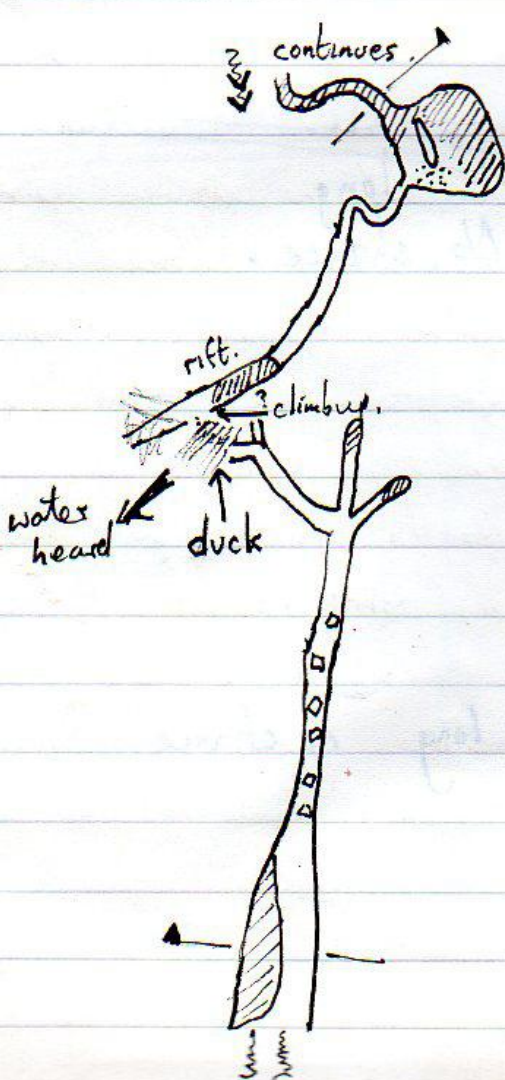 continues.
rift.
climb up.
water
heard
duck